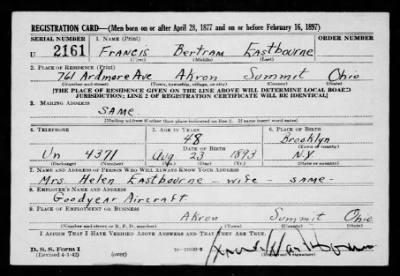 REGISTRATION CARD—(Men born on or after April 28, 1877 and on or before February 16, 1897)
SERIAL NUMBER 1. NAME (Print) ORDER NUMBER
U 2161 Francis Bertram Eastbourne
(First) (Middle) (Last)
2. PLACE OF RESIDENCE (Print)
761 Ardmore Ave Akron Summit Ohio
(Number and street) (Town, township, village, or city) (County) (State)
[THE PLACE OF RESIDENCE GIVEN ON THE LINE ABOVE WILL DETERMINE LOCAL BOARD
JURISDICTION; LINE 2 OF REGISTRATION CERTIFICATE WILL BE IDENTICAL]
3. MAILING ADDRESS
SAME
[Mailing address if other than place indicated on line 2. If same insert word same]
4. TELEPHONE 5. AGE IN YEARS 6. PLACE OF BIRTH
48 Brooklyn
DATE OF BIRTH (Town or county)
Un 4371 Aug 23 1893 N.Y
(Exchange) (Number) (Mo.) (Day) (Yr.) (State or country)
7. NAME AND ADDRESS OF PERSON WHO WILL ALWAYS KNOW YOUR ADDRESS
Mrs Helen Eastbourne - wife - same -
8. EMPLOYER'S NAME AND ADDRESS
Goodyear Aircraft
9. PLACE OF EMPLOYMENT OR BUSINESS
Akron Summit Ohio
(Number and street or R. F. D. number) (Town) (County) (State)
I AFFIRM THAT I HAVE VERIFIED ABOVE ANSWERS AND THAT THEY ARE TRUE.
D. S. S. Form 1
(Revised 4-1-42) (over)